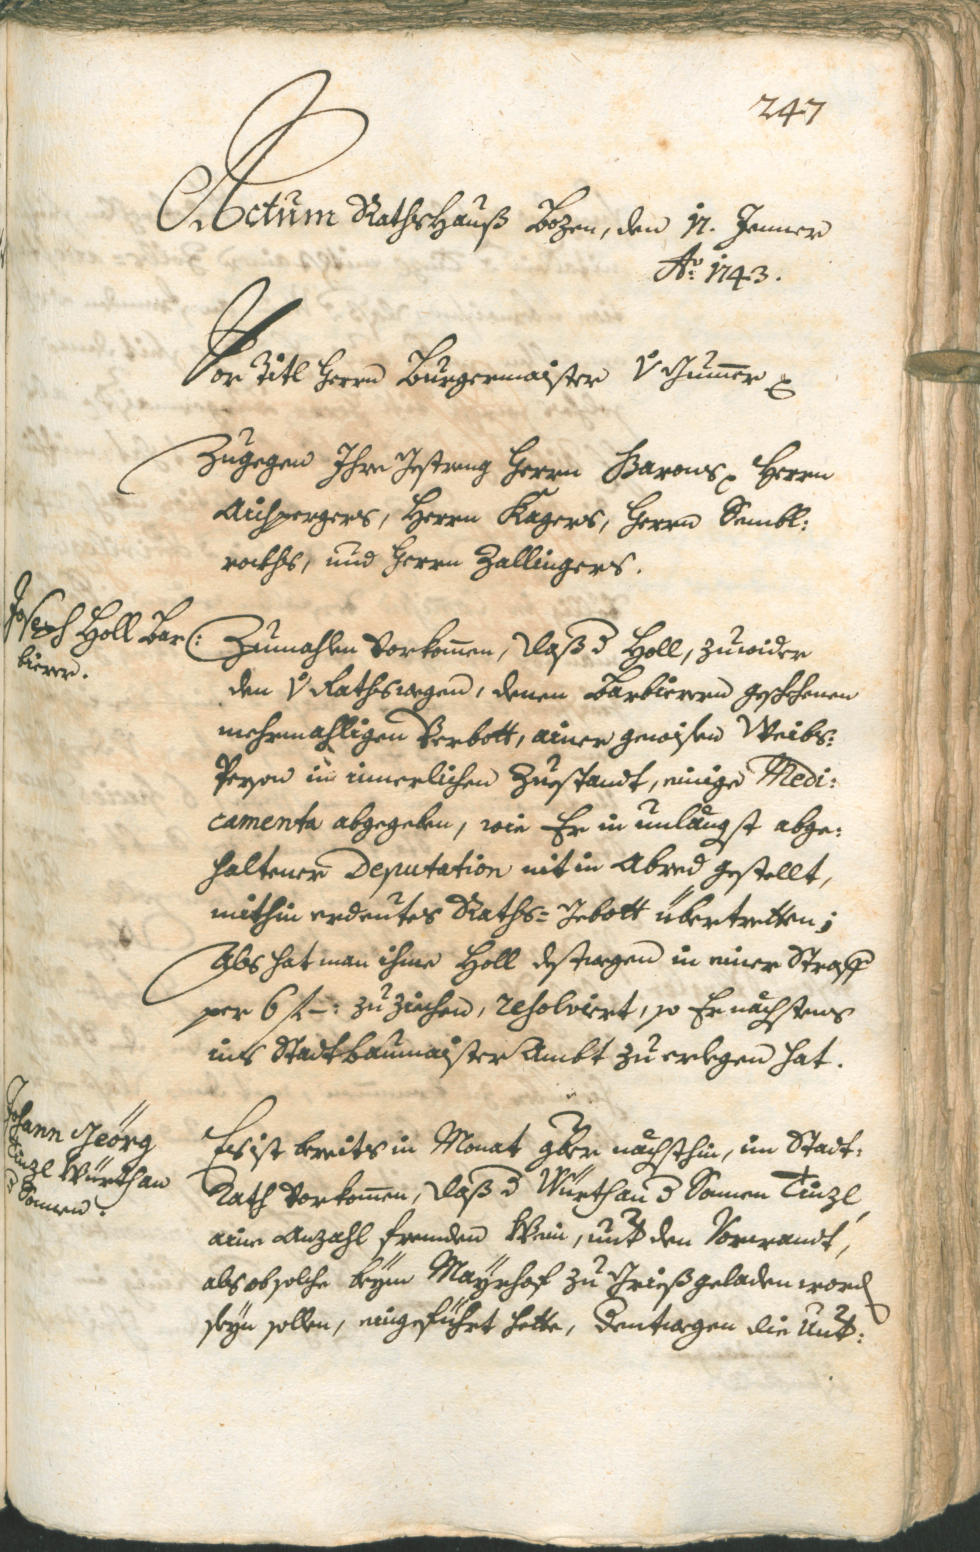 247
Actum Rathshauß Bozen, den 17. Jenner
Ao: 1743.
Vor Titl Herrn Burgermaister v Gumer
Zugegen Ihre Gestreng Herrn Barons, Herrn
Aichpergers, Herrn Kagers, Herrn Sembl:
rockhs, und Herrn Zallingers.
Joseph Holl Bar:
bierer.
Zumahlen vorkomen, daß d Holl, zuwider
den v Rathswegen, denen Barbierern geschehenen
mehrmahligen Verbott, ainer gewisen Weibs:
Person in innerlichen Zuestandt, einige Medi:
camenta abgegeben, wie Er in unlängst abge:
haltener Deputation nit in Abred gestellt,
mithin erdeutes Raths=Gebott übertretten;
Als hat man ihme Holl destwegen in einer Straff
per 6 f –: zu ziehen, resolviert, so Er nächstens
ins Stadtbaumaister Ambt zu erlegen hat.
Johann Geörg
Tinzl Würth an
d Sonnen.
Es ist bereits in Monat 9ber nächsthin, im Stadt:
Rath vorkomen, daß d Würth an d Sonnen Tinzl
aine Anzahl fremden Wein, unt den Vorwandt,
als ob solche beym Mayrhof zu Grieß geladen word
seyn sollen, eingeführt hette, dentwegen die Unt: